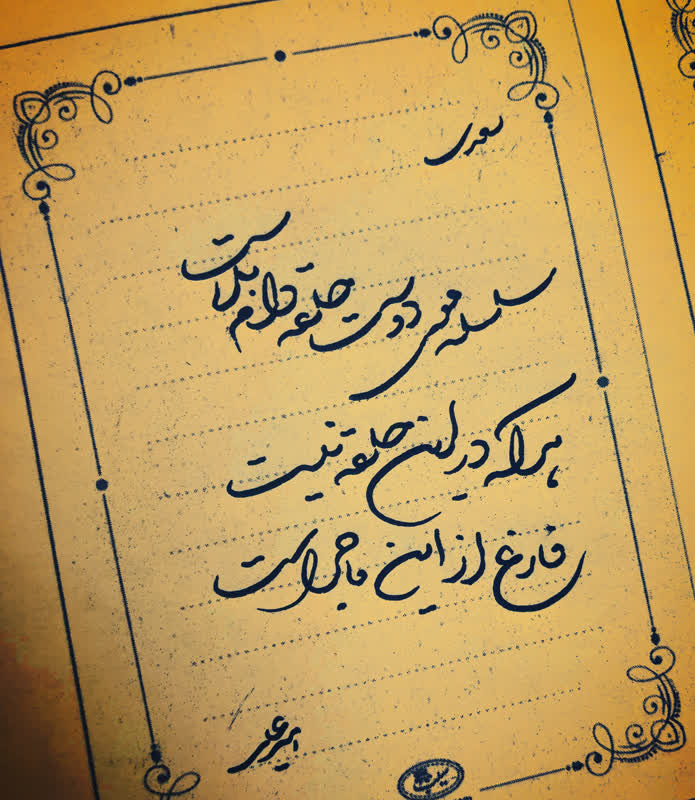 سعدی
سلسله موی دوست حلقه دام بلاست
هرکه در این حلقه نیست
فارغ از این ماجراست
امیرعلی